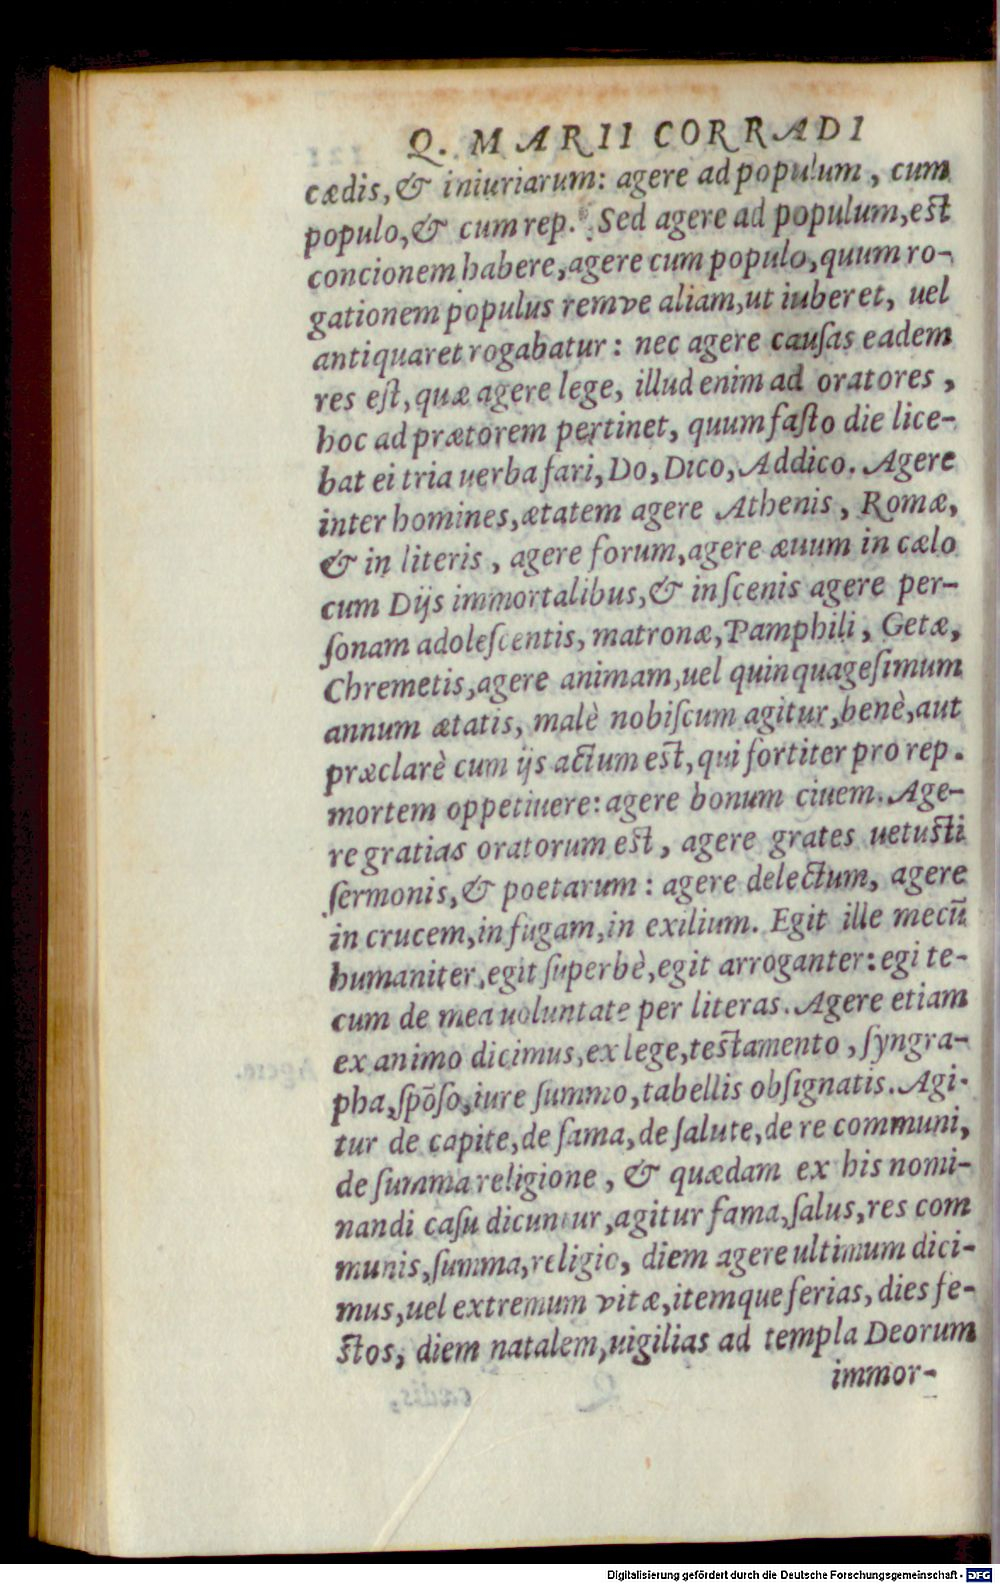 Q. MARII CORRADI
cædis, & iniuriarum: agere ad populum, cum
populo, & cum rep. Sed agere ad populum, est
concionem habere, agere cum populo, quum ro-
gationem populus remve aliam, ut iuberet, uel
antiquaret rogabatur: nec agere causas eadem
res eſt, quæ agere lege, illud enim ad oratores,
hoc ad prætorem pertinet, quum faſto die lice-
bat ei tria uerba fari, Do, Dico, Addico. Agere
inter homines, ætatem agere Athenis, Romæ,
& in literis, agere forum, agere æuum in cælo
cum Dijs immortalibus, & in ſcenis agere per-
ſonam adoleſcentis, matronæ, Pamphili, Getæ,
Chremetis, agere animam, uel quinquageſimum
annum ætatis, malè nobiſcum agitur, benè, aut
præclarè cum ijs actum est, qui fortiter pro rep.
mortem oppetiuere: agere bonum ciuem. Age-
re gratias oratorum est, agere grates uetusti
ſermonis, & poetarum: agere delectum, agere
in crucem, in fugam, in exilium. Egit ille mecũ
humaniter, egit ſuperbè, egit arroganter: egi te-
cum de mea uoluntate per literas. Agere etiam
ex animo dicimus, ex lege, testamento, ſyngra-
pha, ſpõſo, iure ſummo, tabellis obſignatis. Agi-
tur de capite, de fama, de ſalute, de re communi,
de ſumma religione, & quædam ex his nomi-
nandi caſu dicuntur, agitur fama, ſalus, res com
munis, ſumma, religio, diem agere ultimum dici-
mus, uel extremum vitæ, itemque ferias, dies fe-
stos, diem natalem, uigilias ad templa Deorum
immor-
Digitalisierung gefördert durch die Deutsche Forschungsgemeinschaft - DFG